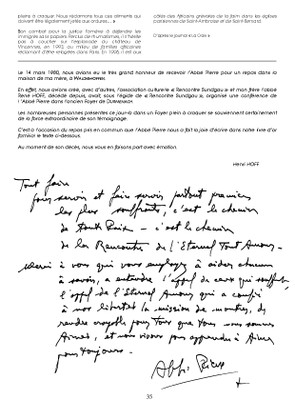 pleins à craquer. Nous réclamons tous ces aliments qui doivent être légalement jetés le soir venu".
Son combat pour la justice l'amène à défendre les immigrés sans papiers. Face au mal-logement, il n'hésite pas à coucher sur l'esplanade du château de Vincennes, en 1993, au milieu de familles africaines réclamant d'être relogées dans Paris. En 1996, il est aux
côtés des Africains grévistes de la faim dans les églises parisiennes de Saint-Ambroise et de Saint-Bernard.
D'après le journal « La Croix »
Le 14 mars 1988, nous avions eu le très grand honneur de recevoir l'Abbé Pierre pour un repas dans la maison de ma mère, à
En effet, nous avions créé, avec d'autres, l'association culturelle « Rencontre Sundgau » et mon frère l'abbé Pierre HOFF, décédé depuis, avait, sous l'égide de « Rencontre Sundgau », organisé une conférence de l'Abbé Pierre dans l'ancien Foyer de
Les nombreuses personnes présentes ce jour-là dans un Foyer plein à craquer se souviennent certainement de la force extraordinaire de son témoignage.
C'est à l'occasion du repas pris en commun que l'Abbé Pierre nous a fait la joie d'écrire dans notre livre d'or familial le texte ci-dessous.
Au moment de son décès, nous vous en faisons part avec émotion.
Henri HOFF
Tout faire
pour servir et faire servir partout premiers
les plus souffrants, c'est le chemin
de toute Paix - c'est le chemin
de la Rencontre de l'Eternel Tout Amour.
Merci à vous qui vous employez à aider chacun
à savoir, à entendre l'appel de ceux qui souffrent,
l'appel de l'Eternel Amour qui a confié
à nos libertés la mission de montrer, de
rendre croyable pour tous que tous nous sommes
Aimés, et nous vivons pour apprendre à Aimer
pour toujours.
Abbé Pierre
35